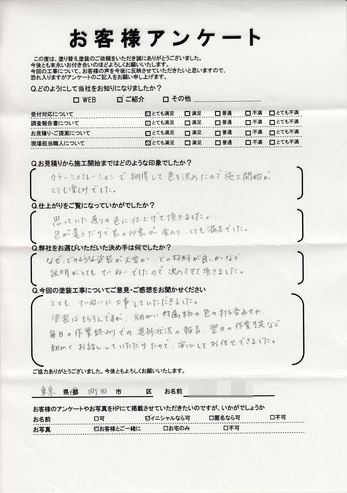 お客様アンケート
この度は、塗り替え塗装のご依頼をいただき誠にありがとうございました。
今後とも末永いお付き合いのほどよろしくお願いいたします。
今回の工事について、お客様の声を今後に反映させていただきたいと思いますので、
恐れ入りますがアンケートのご記入をお願い申し上げます。
Q.どのようにして当社をお知りになりましたか？
□ WEB ☑ ご紹介 □ その他
受付対応について ☑とても満足 □満足 □普通 □不満 □とても不満
調査報告書について ☑とても満足 □満足 □普通 □不満 □とても不満
お見積り・ご提案について ☑とても満足 □満足 □普通 □不満 □とても不満
現場担当職人について ☑とても満足 □満足 □普通 □不満 □とても不満
Q.お見積りから施工開始まではどのような印象でしたか？
カラーシュミレーションで納得して色を決めたので施工開始が
とても楽しみでした。
Q.仕上がりをご覧になっていかがでしたか？
思い通りの色に仕上げて頂きました。
色が違うだけで家の印象が変わり とても満足でした。
Q.弊社をお選びいただいた決め手は何でしたか？
なぜ、どのような塗装が必要か、どの材料が良いかなど、
説明がとても ていねいでしたので 決めさせて頂きました。
Q.今回の塗装工事についてご意見・ご感想をお聞かせください
とても、ていねいに工事していただきました。
塗装はもちろんですが、細かい付属物の色の打ち合わせや、
毎日の作業終わりでの進捗状況の報告、翌日の作業予定など
細かくお話ししていただけたので、安心してお任せできました。
ご協力ありがとうございました。今後ともよろしくお願いいたします。
東京 県・都 町田 市 区 お名前
お客様のアンケートやお写真をHPにて掲載させていただきたいのですが、いかがでしょうか
お名前 □可 ☑イニシャルなら可 □匿名なら可 □不可
お写真 ☑お客様とご一緒に □お宅のみ □不可